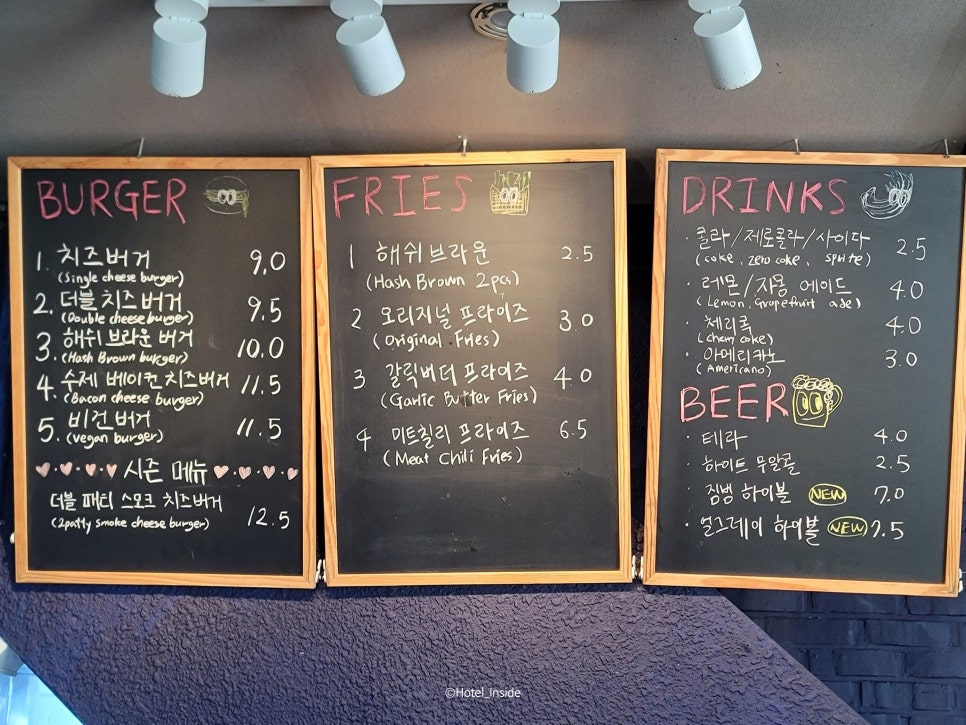 BURGER
1. 치즈버거 9.0
(Single cheese burger)
2. 더블 치즈버거 9.5
(Double cheese burger)
3. 해쉬 브라운 버거 10.0
(Hash Brown burger)
4. 수제 베이컨 치즈버거 11.5
(Bacon cheese burger)
5. 비건 버거 11.5
(vegan burger)
시즌 메뉴
더블 패티 스모크 치즈버거
(2patty smoke cheese burger) 12.5
FRIES
1 해쉬 브라운 2.5
(Hash Brown 2pcs)
2 오리지널 프라이즈 3.0
(Original Fries)
3 갈릭버터 프라이즈 4.0
(Garlic Butter Fries)
4 미트칠리 프라이즈 6.5
(Meat Chili Fries)
DRINKS
· 콜라/제로콜라/사이다 2.5
(coke, zero coke, sprite)
· 레몬/자몽 에이드 4.0
(Lemon, Grapefruit ade)
· 체리콕 4.0
· 아메리카노 3.0
(Americano)
BEER
· 테라 4.0
· 하이트 무알콜 2.5
· 짐빔 하이볼 NEW 7.0
· 얼그레이 하이볼 NEW 7.5
©Hotel_Inside